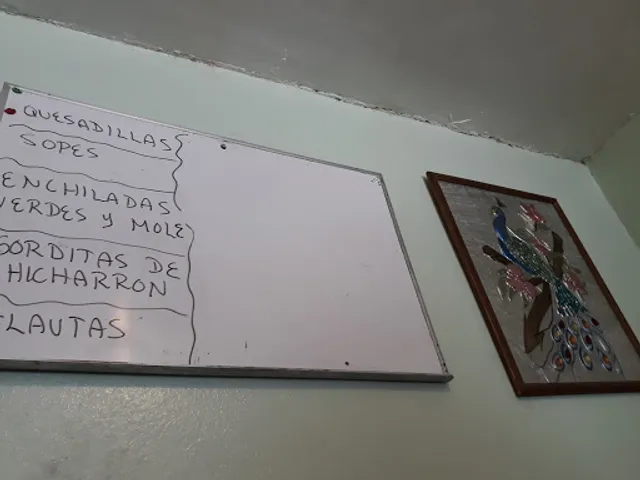 QUESADILLAS
SOPES
ENCHILADAS
VERDES y MOLE
GORDITAS DE
HICHARRON
FLAUTAS